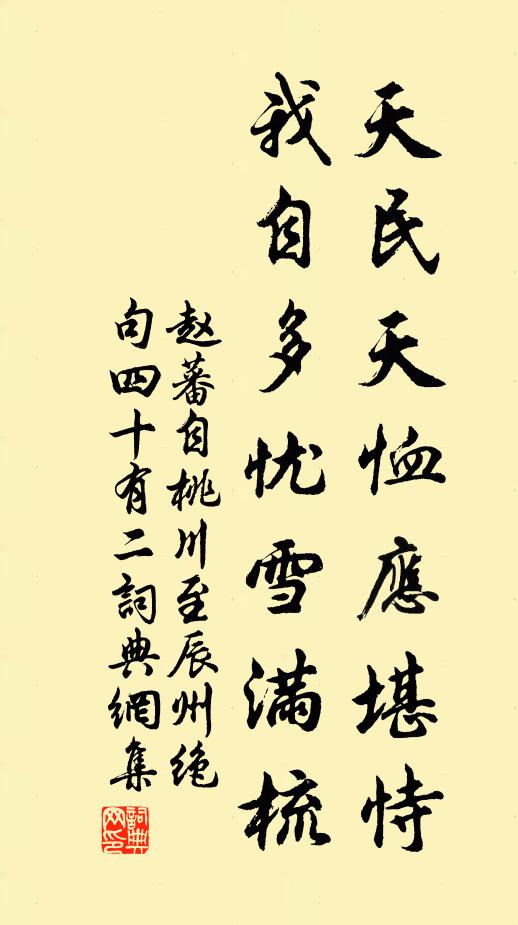 天民天恤應堪恃
我自多忧雪满梳
赵蕃自桃川至辰州绝
句四十有二詞典網集
詞典
网印